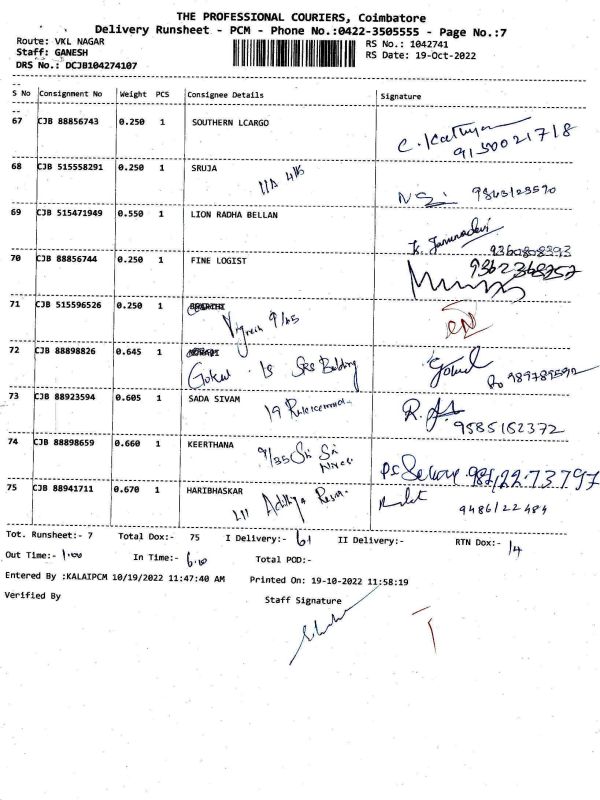 THE PROFESSIONAL COURIERS, Coimbatore
Delivery Runsheet - PCM - Phone No.:0422-3505555 - Page No.:7
Route: VKL NAGAR
RS No.: 1042741
Staff: GANESH
RS Date: 19-Oct-2022
DRS No.: DCJB104274107
S No Consignment No Weight PCS Consignee Details Signature
67 CJB 88856743 0.250 1 SOUTHERN LCARGO
9150021718
68 CJB 515558291 0.250 1 SRUJA
9843123590
69 CJB 515471949 0.550 1 LION RADHA BELLAN
K. Jamunadevi
70 CJB 88856744 0.250 1 FINE LOGIST
71 CJB 515596526 0.250 1
72 CJB 88898826 0.645 1
Gokul 18 SKS Bulding
Gokul
73 CJB 88923594 0.605 1 SADA SIVAM
9585182372
74 CJB 88898659 0.660 1 KEERTHANA
9/35 Sri Sai
75 CJB 88941711 0.670 1 HARIBHASKAR
9486122484
Tot. Runsheet:- 7 Total Dox:- 75 I Delivery:- 61 II Delivery:- RTN Dox:- 14
Out Time:- 1.00 In Time:- 6.00 Total POD:-
Entered By :KALAIPCM 10/19/2022 11:47:40 AM Printed On: 19-10-2022 11:58:19
Verified By Staff Signature